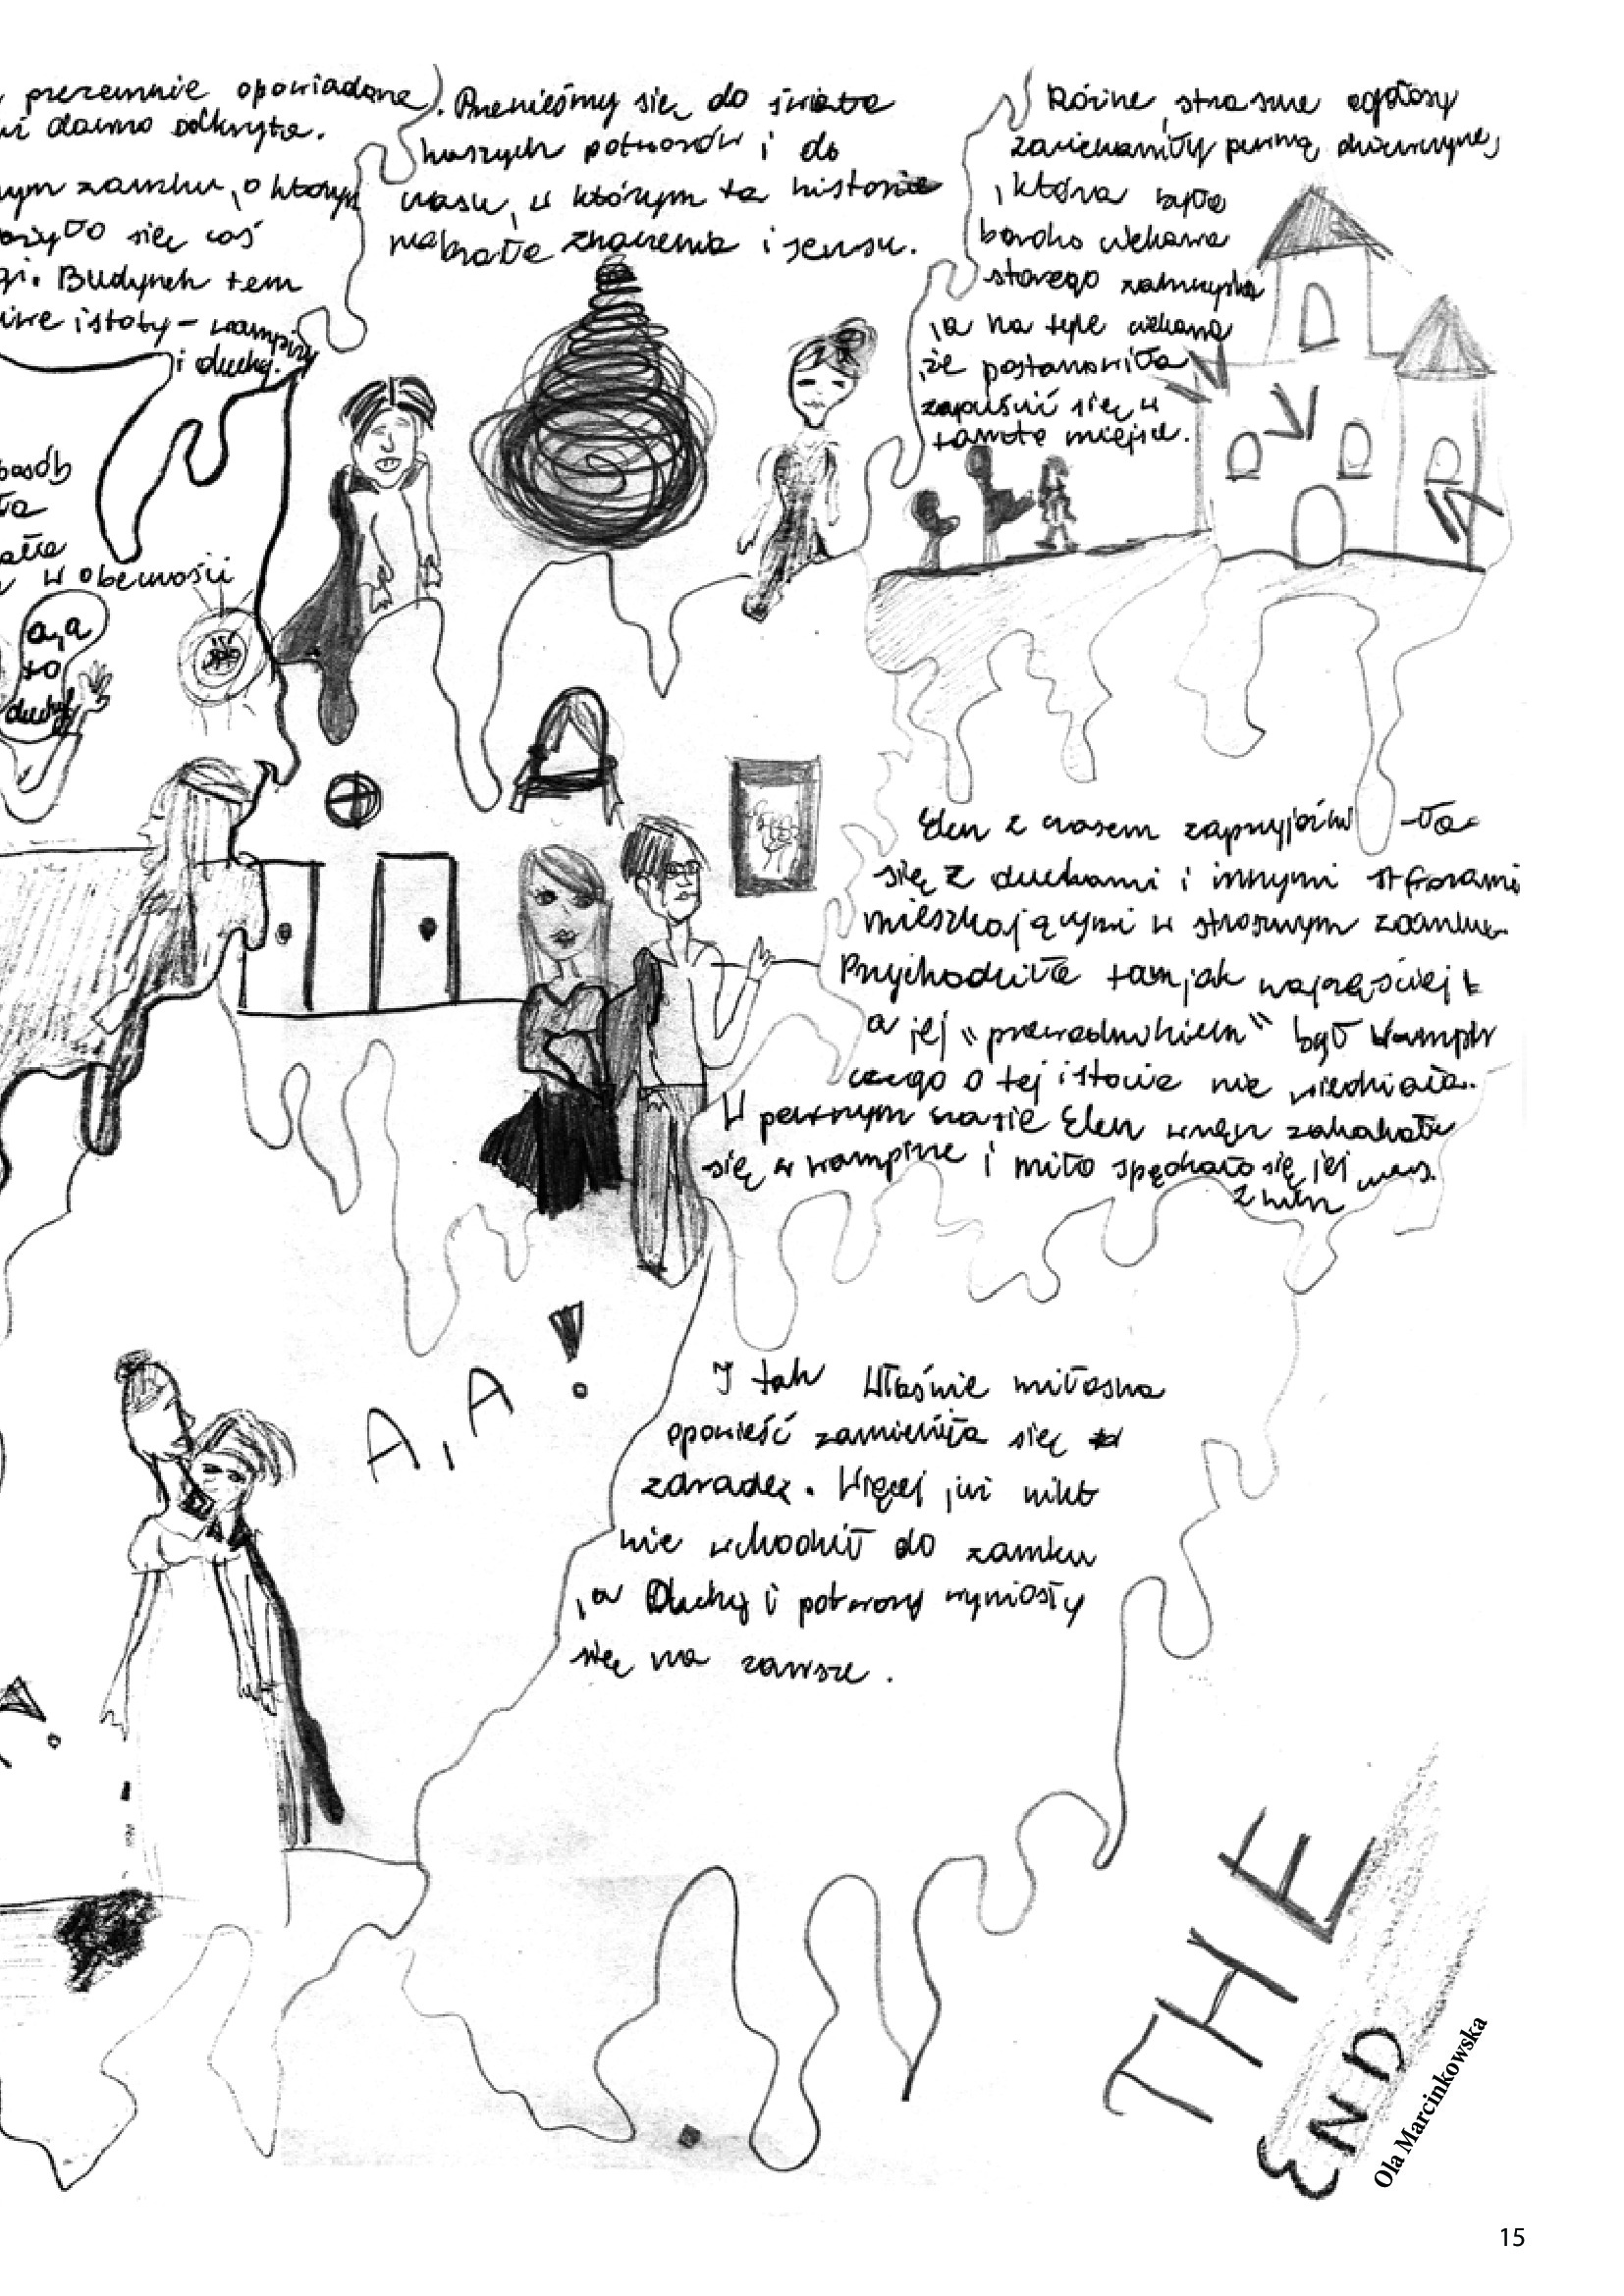 przezemnie opowiadane
dawno odkryta.
zamku, o którym
się coś
Budynek tem
istoty - wampiry
i duchy.
w obecności
a, a
to
duchy
. Przenieśmy się do świata
naszych potworów i do
czasu, w którym ta historia
nabrała znaczenia i sensu.
Różne, straszne odgłosy
zaciekawiły pewną dziewczynę
, która była
bardzo ciekawa
starego zamczyska
, a na tyle ciekawa
, że postanowiła
zapuścić się w
tamte miejsce.
Elen z czasem zaprzyjaźni -ła
się z duchami i innymi stforami
mieszkającymi w strasznym zamku.
Przychodziła tam jak najczęściej
a jej "przewodnikiem" był wampir
czego o tej istocie nie wiedziała.
W pewnym czasie Elen wręcz zakochała
się w wampirze i miło spędzało się jej czas.
z nim
A, A!
I tak właśnie miłosna
opowieść zamieniła się
zdradę. Więcej już nikt
nie wchodził do zamku
, a Duchy i potwory wyniosły
się na zawsze.
THE
END
Ola Marcinkowska
15